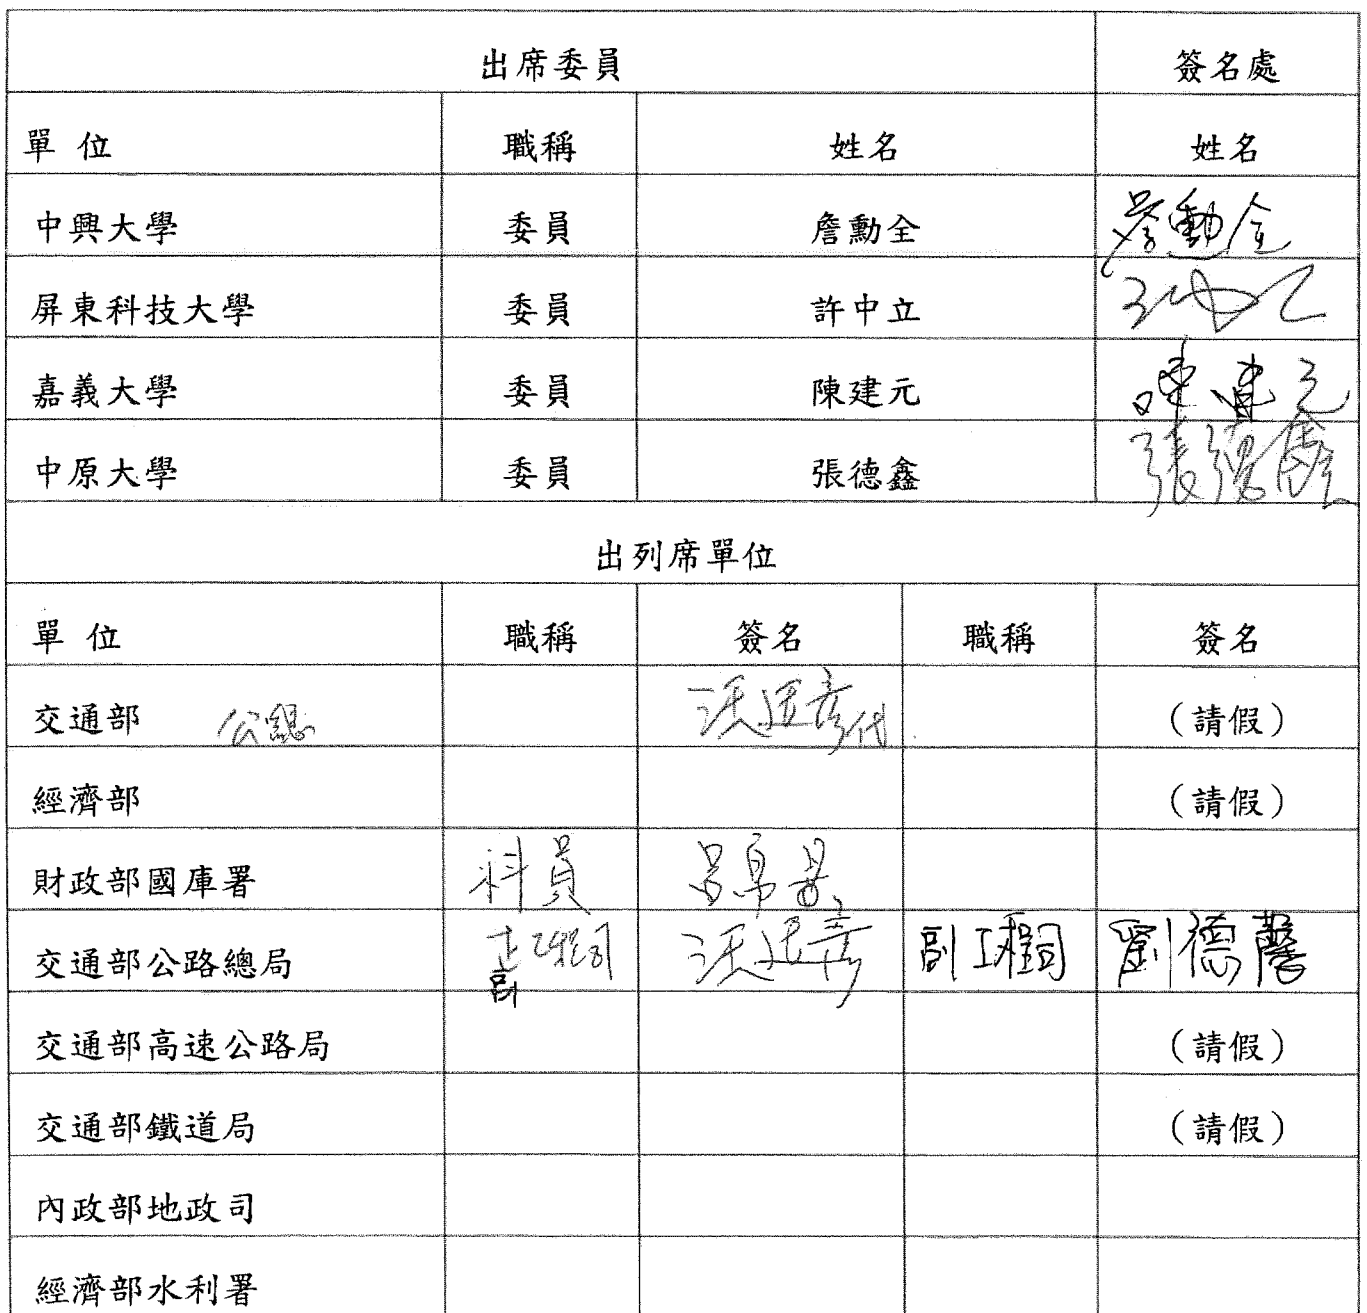 出席委員 簽名處
單 位 職稱 姓名 姓名
中興大學 委員 詹勳全 詹勳全
屏東科技大學 委員 許中立 許中立
嘉義大學 委員 陳建元 陳建元
中原大學 委員 張德鑫 張德鑫
出列席單位
單 位 職稱 簽名 職稱 簽名
交通部 公總 代 (請假)
經濟部 (請假)
財政部國庫署 科員
交通部公路總局 副 副工程司 劉德馨
交通部高速公路局 (請假)
交通部鐵道局 (請假)
內政部地政司
經濟部水利署